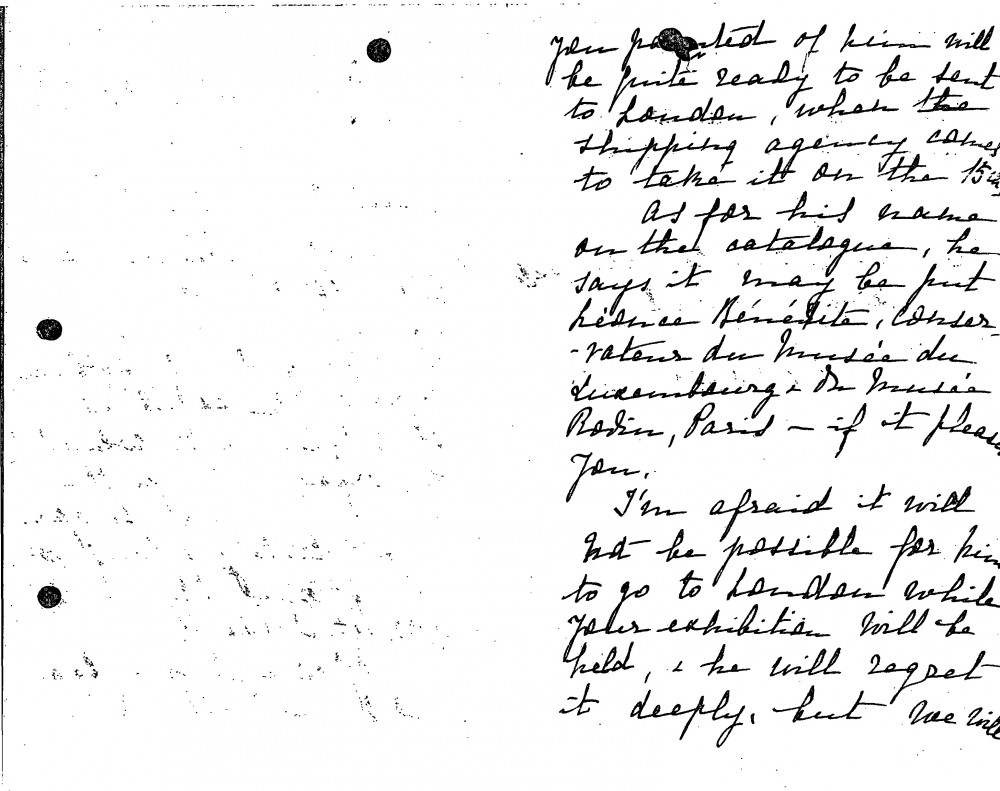 you painted of him will
be quite ready to be sent
to London, when the
shipping agency comes
to take it on the 15th
As for his name
on the catalogue, he
says it may be put
Léonce Bénédite, conser-
-vateur du Musée du
Luxembourg & du Musée
Rodin, Paris — if it please
you.
I'm afraid it will
not be possible for him
to go to London while
your exhibition will be
held, & he will regret
it deeply, but we will